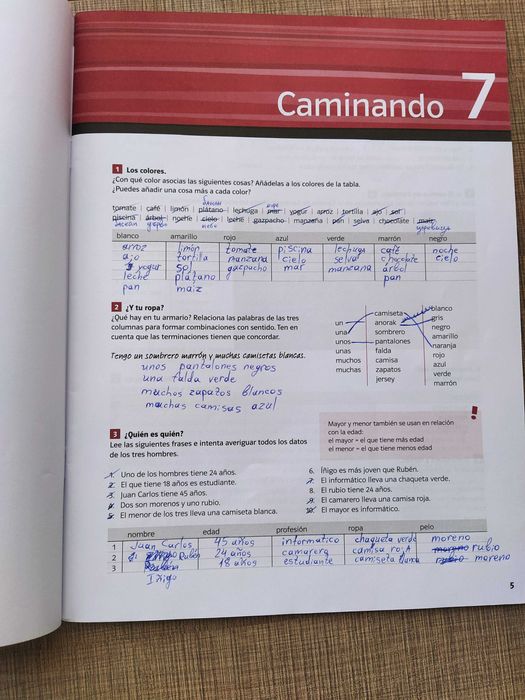 Caminando 7
1 Los colores.
¿Con qué color asocias las siguientes cosas? Añádelas a los colores de la tabla.
¿Puedes añadir una cosa más a cada color?
tomate | café | limón | plátano | lechuga | mar | yogur | arroz | tortilla | ajo | sol
piscina | árbol | noche | cielo | leche | gazpacho | manzana | pan | selva | chocolate | maíz
небо кукуруза
blanco amarillo rojo azul verde marrón negro
arroz limón tomate piscina lechuga café noche
ajo tortilla manzana cielo selva chocolate cielo
yogur sol gazpacho mar manzana árbol
leche plátano pan
pan maíz
2 ¿Y tu ropa?
¿Qué hay en tu armario? Relaciona las palabras de las tres
columnas para formar combinaciones con sentido. Ten en
cuenta que las terminaciones tienen que concordar.
Tengo un sombrero marrón y muchas camisetas blancas.
unos pantalones negros
una falda verde
muchos zapatos blancos
muchas camisas azul
un
una
unos
unas
muchos
muchas
camiseta
anorak
sombrero
pantalones
falda
camisa
zapatos
jersey
blanco
gris
negro
amarillo
naranja
rojo
azul
verde
marrón
3 ¿Quién es quién?
Lee las siguientes frases e intenta averiguar todos los datos
de los tres hombres.
!
Mayor y menor también se usan en relación
con la edad:
el mayor = el que tiene más edad
el menor = el que tiene menos edad
1. Uno de los hombres tiene 24 años.
2. El que tiene 18 años es estudiante.
3. Juan Carlos tiene 45 años.
4. Dos son morenos y uno rubio.
5. El menor de los tres lleva una camiseta blanca.
6. Íñigo es más joven que Rubén.
7. El informático lleva una chaqueta verde.
8. El rubio tiene 24 años.
9. El camarero lleva una camisa roja.
10. El mayor es informático.
nombre edad profesión ropa pelo
1 Juan Carlos 45 años informatico chaqueta verde moreno
2 Rubén 24 años camarera camisa roja rubio
3 18 años estudiante camiseta blanca moreno
Iñigo
5